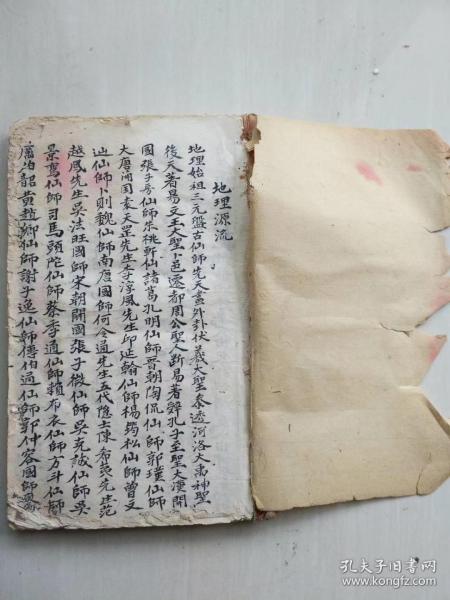 地理源流
地理始祖三元盤古仙師先天畫外卦伏羲大聖泰透河洛大禹神聖
後天著易文王大聖卜邑遷都周公聖人斷易著辭孔子至聖大漢開
國張子房仙師朱桃軒仙諸葛孔明仙師晋朝陶侃仙師郭璞仙師
大唐開國袁天罡先生李淳風先生印延翰仙師楊筠松仙師曾文
辿仙師卜則魏仙師南唐國師何令通先生五代隐士陳希夷先生范
越鳳先生吳法旺國師宋朝開國張子微仙師吳克誠仙師吳
景鸞仙師司馬頭陀仙師蔡季通仙師賴布衣仙師方斗仙師
廖伯韶黄趙卿仙師謝子逸仙師傅伯通仙師鄒仲容國師
孔夫子旧书网
www.kongfz.com